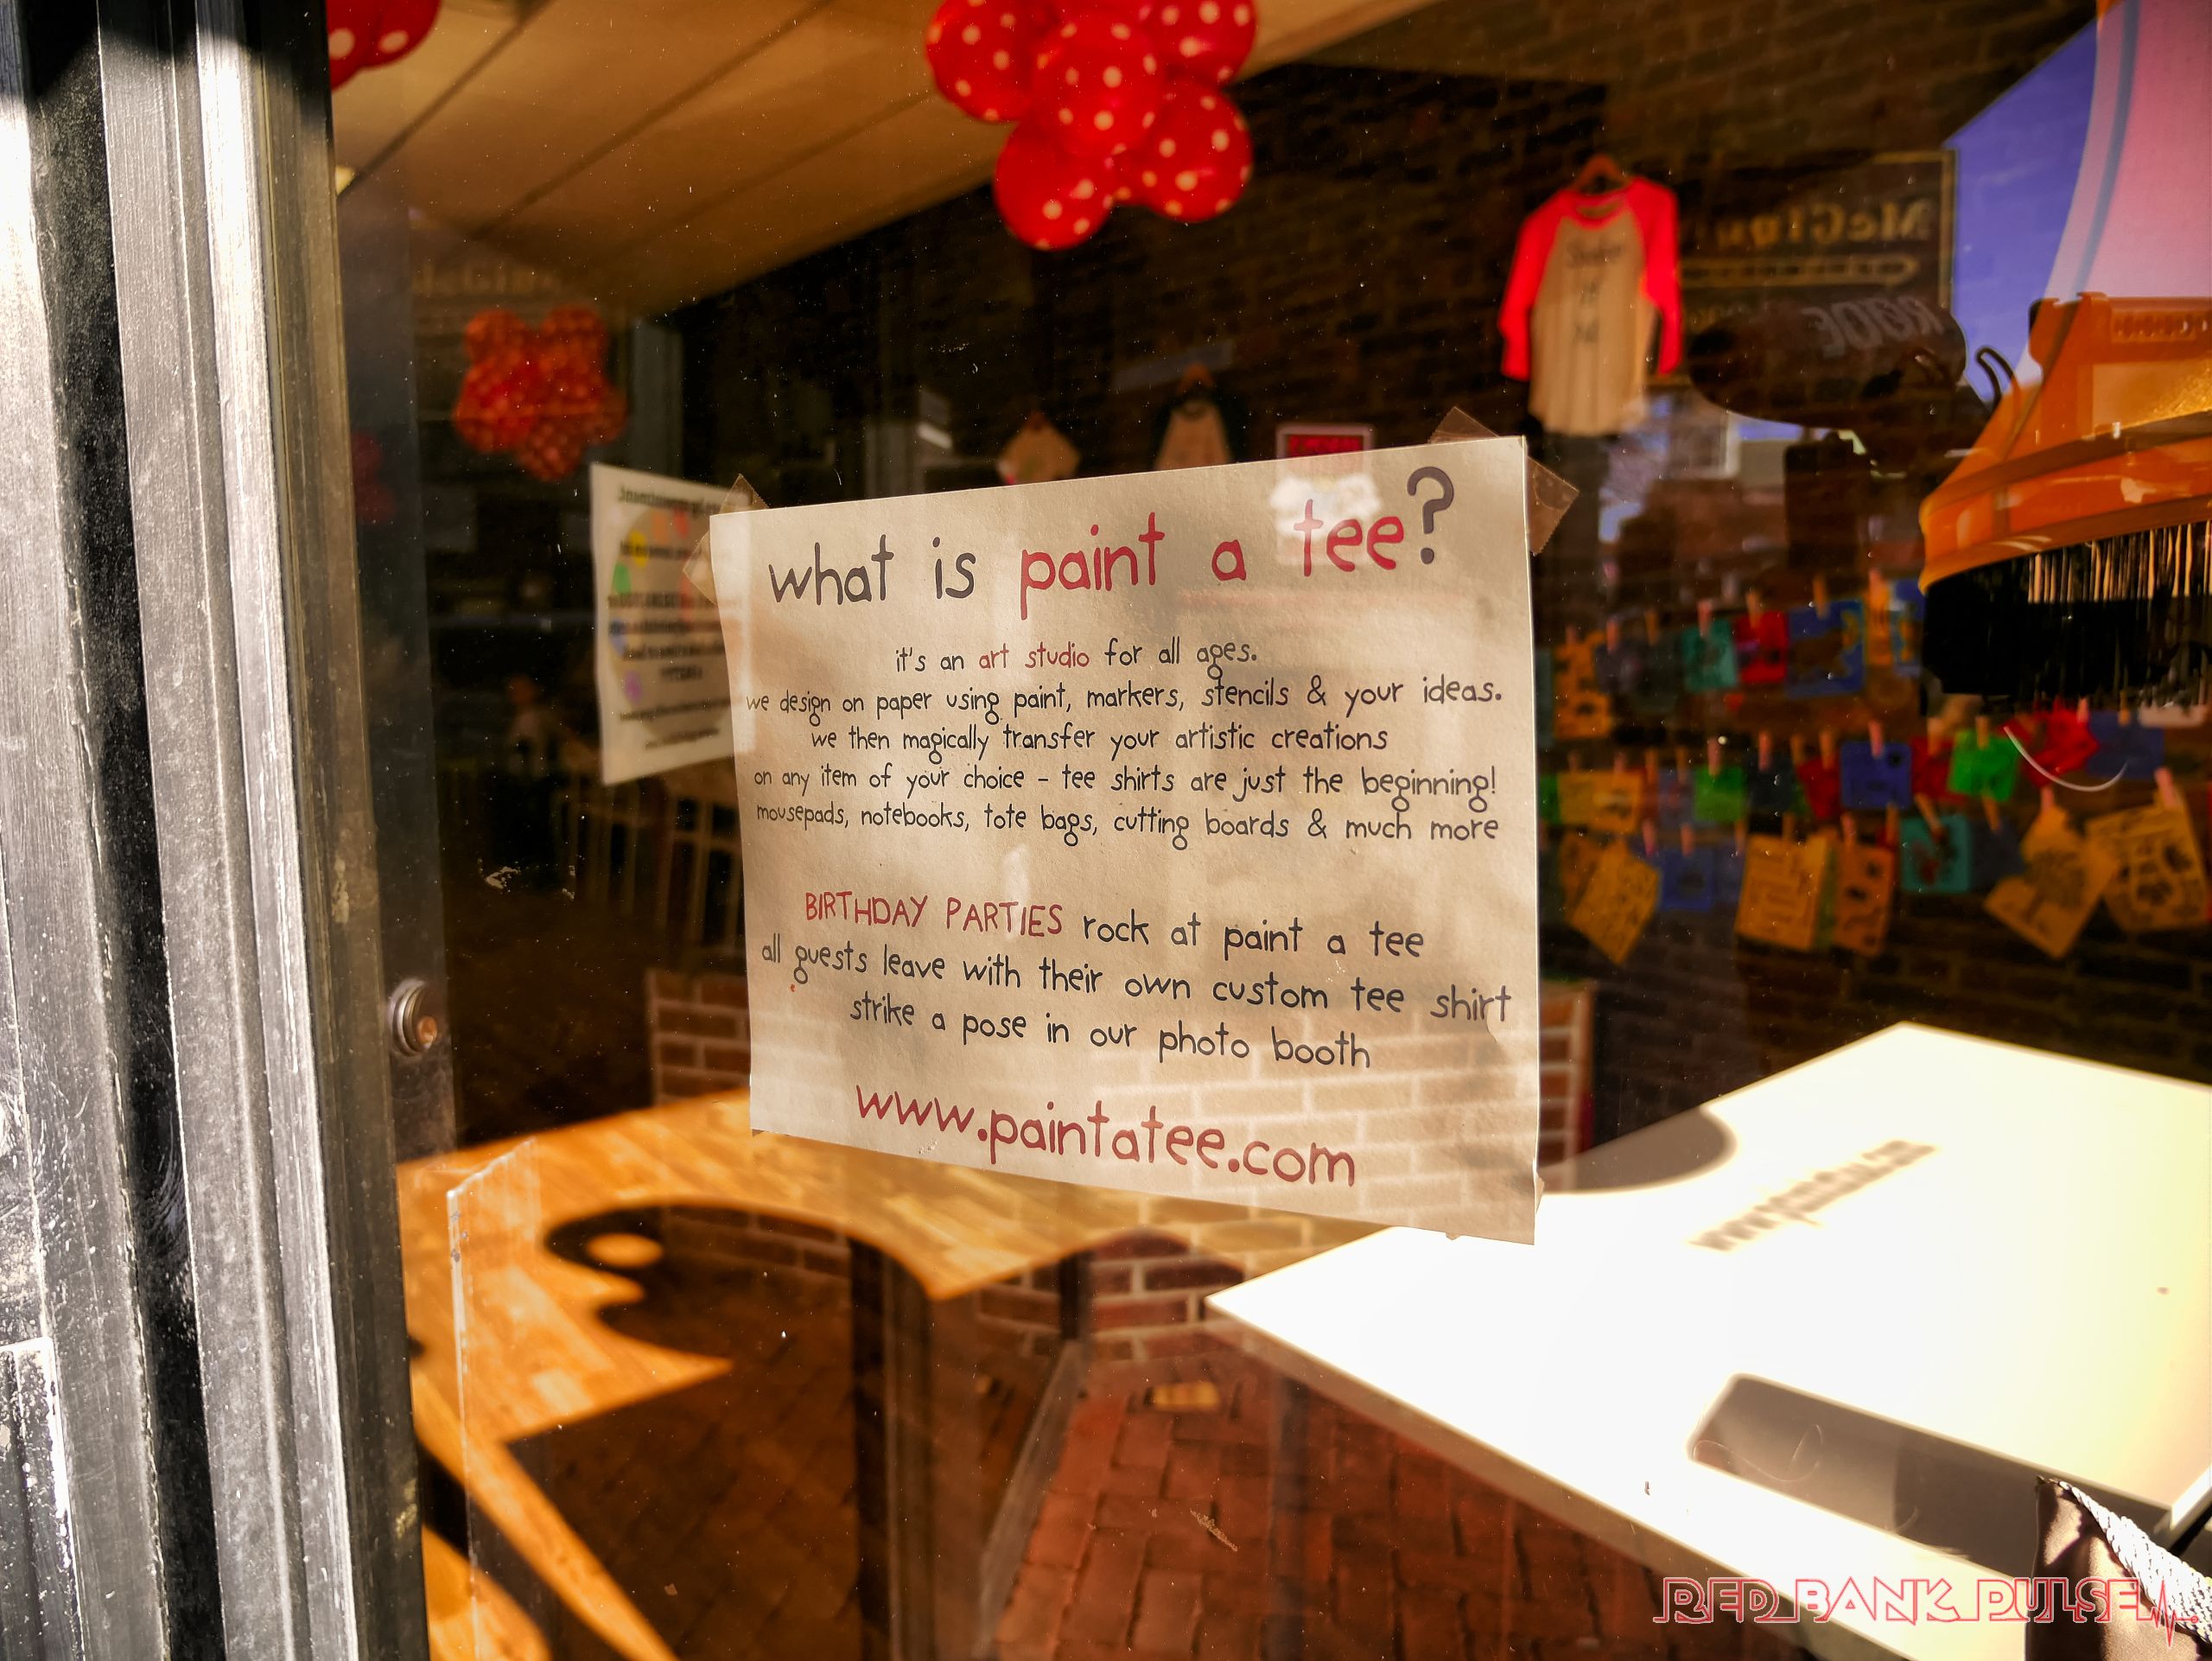 what is paint a tee?
it's an art studio for all ages.
we design on paper using paint, markers, stencils & your ideas.
we then magically transfer your artistic creations
on any item of your choice - tee shirts are just the beginning!
mousepads, notebooks, tote bags, cutting boards & much more
BIRTHDAY PARTIES rock at paint a tee
all guests leave with their own custom tee shirt
strike a pose in our photo booth
www.paintatee.com
RED BANK PULSE